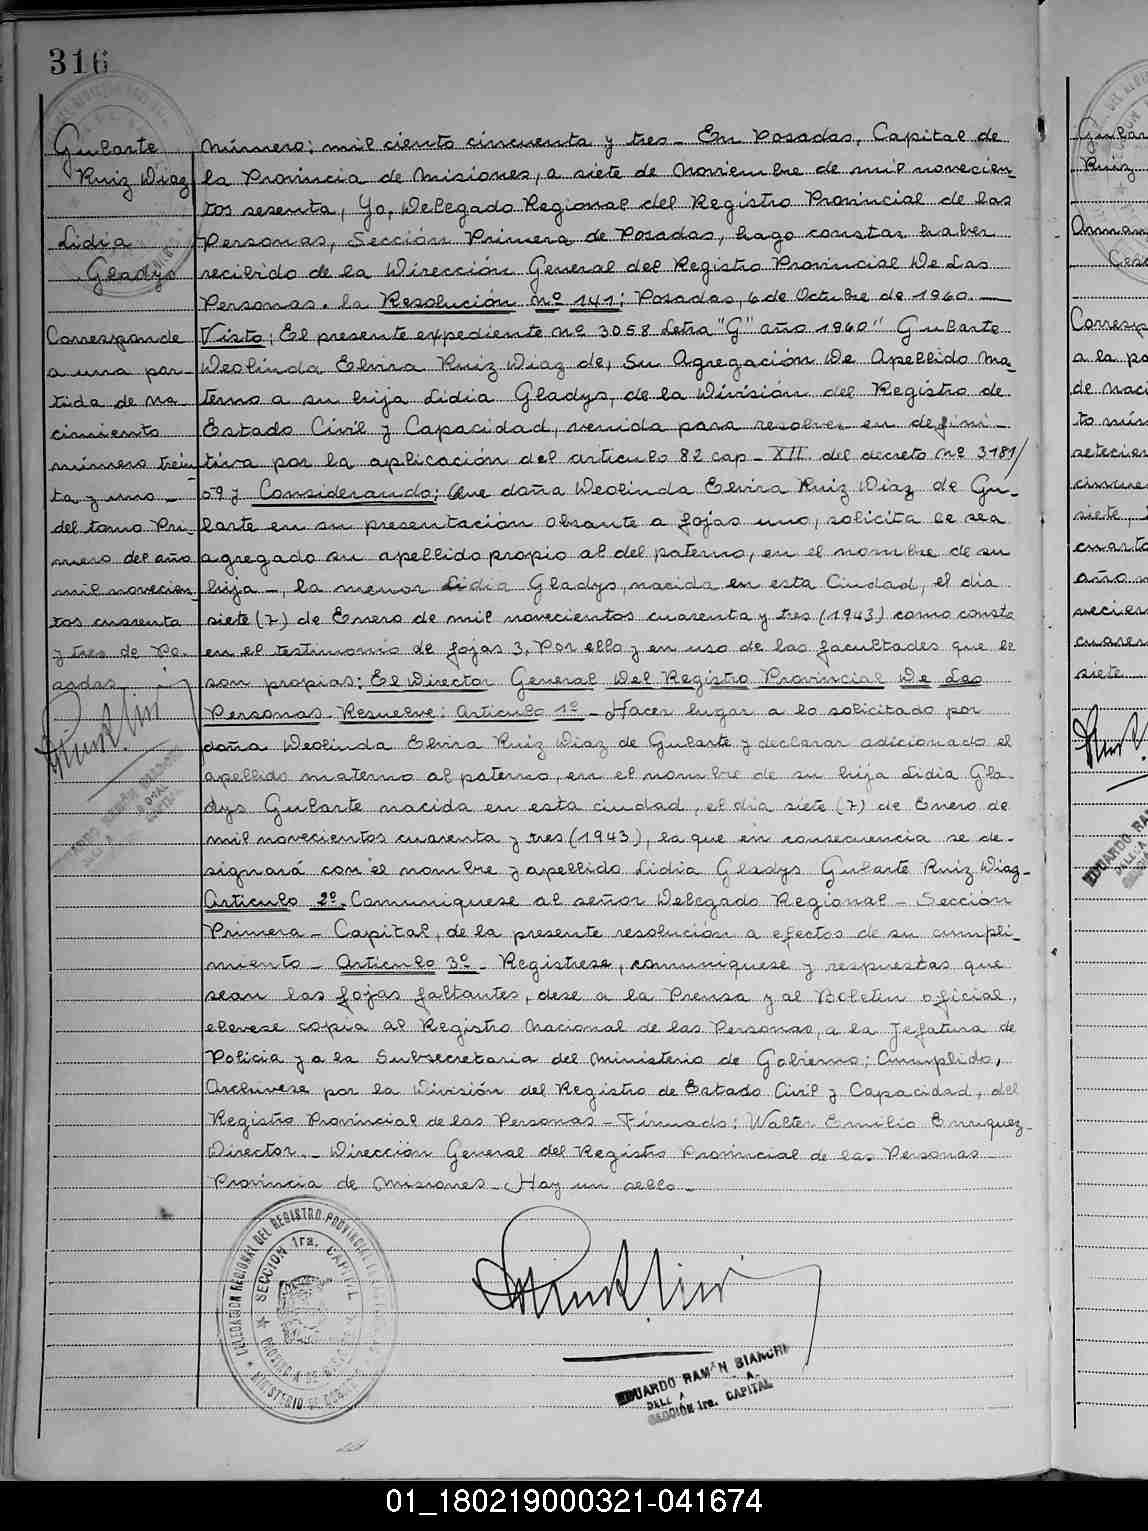 316
Gularte
Ruiz Diaz
Lidia
Gladys
Corresponde
a una par-
tida de na
cimiento
número trein
ta y uno -
del tomo Pri
mero del año
mil novecien
tos cuarenta
y tres de Po-
sadas
Número; mil ciento cincuenta y tres - En Posadas, Capital de
la Provincia de Misiones, a siete de Noviembre de mil novecien-
tos sesenta, Yo, Delegado Regional del Registro Provincial de las
Personas, Sección Primera de Posadas, hago constar haber
recibido de la Dirección General del Registro Provincial De Las
Personas. la Resolución nº 141; Posadas, 6 de Octubre de 1960. —
Visto: El presente expediente nº 3058 Letra "G" año 1960" Gularte
Deolinda Elvira Ruiz Diaz de, Su Agregación De Apellido Ma-
terno a su hija Lidia Gladys, de la División del Registro de
Estado Civil y Capacidad, venida para resolver en defini-
tiva por la aplicación del articulo 82 cap- XII del decreto nº 3181/
09 y Considerando: Que doña Deolinda Elvira Ruiz Diaz de Gu-
larte en su presentación obrante a fojas uno, solicita le sea
agregado su apellido propio al del paterno, en el nombre de su
hija -, la menor Lidia Gladys, nacida en esta Ciudad, el dia
siete (7) de Enero de mil novecientos cuarenta y tres (1943) como consta
en el testimonio de fojas 3, Por ello y en uso de las facultades que le
son propias: El Director General Del Registro Provincial De Las
Personas. Resuelve: Articulo 1º - Hacer lugar a lo solicitado por
doña Deolinda Elvira Ruiz Diaz de Gularte y declarar adicionado el
apellido materno al paterno, en el nombre de su hija Lidia Gla-
dys Gularte nacida en esta ciudad, el dia siete (7) de Enero de
mil novecientos cuarenta y tres (1943), la que en consecuencia se de-
signará con el nombre y apellido Lidia Gladys Gularte Ruiz Diaz-
Articulo 2º. Comuniquese al señor Delegado Regional - Sección
Primera - Capital, de la presente resolución a efectos de su cumpli-
miento - Articulo 3º - Registrese, comuniquese y respuestas que
sean las fojas faltantes, dese a la Prensa y al Boletin oficial,
elevese copia al Registro Nacional de las Personas, a la Jefatura de
Policia y a la Subsecretaria del Ministerio de Gobierno; Cumplido,
Archivese por la División del Registro de Estado Civil y Capacidad, del
Registro Provincial de las Personas - Firmado: Walter Emilio Enriquez-
Director. - Dirección General del Registro Provincial de las Personas -
Provincia de Misiones - Hay un sello -
DELEGACION REGIONAL DEL REGISTRO PROVINCIAL
SECCION 1ra. CAPITAL
EDUARDO RAMÓN BIANCHI
SECCIÓN 1ra. CAPITAL
Gular
Ruiz
Corresp
a la pa
de naci
to núm
setecien
cincuen
siete,
cuarto
año m
vecien
cuaren
siete
EDUARDO RA
01_180219000321-041674